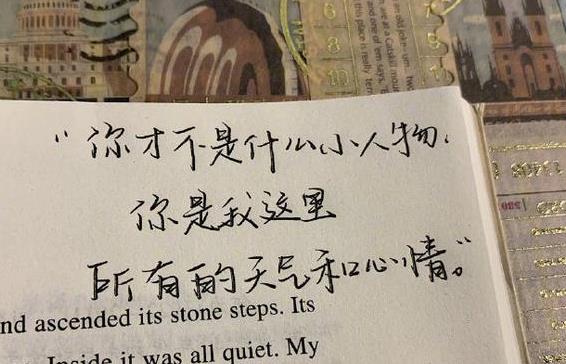 "你才不是什么小人物,
你是我这里
所有的天气和心情。"
nd ascended its stone steps. Its
Inside it was all quiet. My